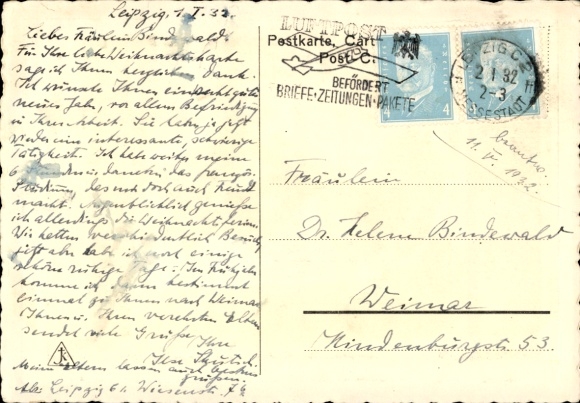 Leipzig, 1. I. 32.
Liebes Fräulein Bindewald!
Für Ihre liebe Weihnachtskarte
sag ich Ihnen herzlichen Dank.
Ich wünsche Ihnen ein recht gutes
neues Jahr, vor allem Befriedigung
in Ihrer Arbeit. Sie haben ja jetzt
wieder eine interessante, schwierige
Tätigkeit. Ich habe weiter meine
6 Stunden u. daneben das
Studium, das mir doch auch Freude
macht. Augenblicklich genieße
ich allerdings die Weihnachtsferien.
Wir hatten Besuch,
jetzt aber habe ich noch einige
schöne ruhige Tage. Im Frühjahr
komme ich dann bestimmt
einmal zu Ihnen nach Weimar.
Ihnen u. Ihren verehrten Eltern
sendet viele Grüße
Ihre
Ilse
Meine Eltern lassen auch bestens
grüßen.
Abs. Leipzig Wiesenstr.
k
LUFTPOST
Postkarte, Cart
Post C.
BEFÖRDERT
BRIEFE·ZEITUNGEN·PAKETE
4
LEIPZIG C2
2.1.32
2-3
MESSESTADT
beantw.
11. V. 1932.
Fräulein
Dr. Helene Bindewald
Weimar
Hindenburgstr. 53.